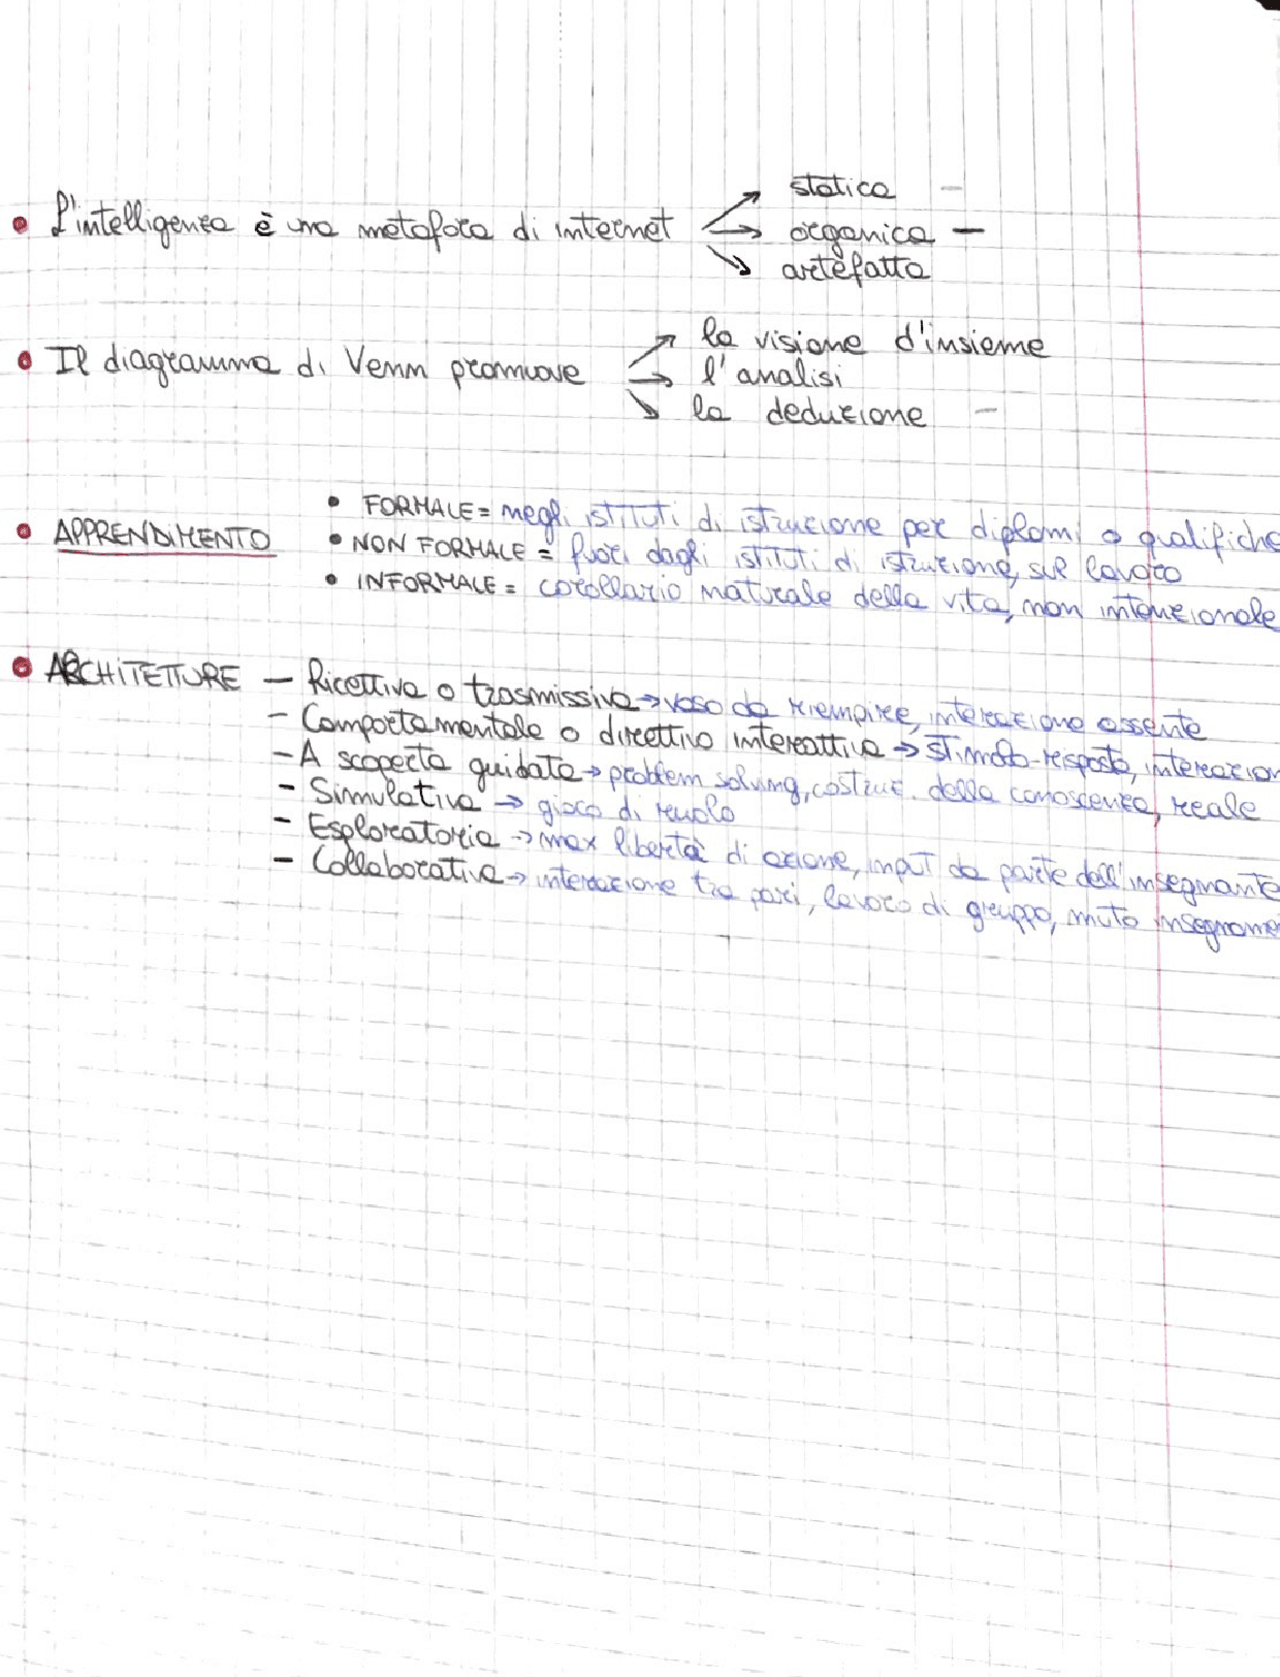 statica -
• L'intelligenza è una metafora di internet → organica -
artefatta
la visione d'insieme
• Il diagramma di Venn promuove → l'analisi
la deduzione -
• FORMALE = negli istituti di istruzione per diplomi o qualifiche
• APPRENDIMENTO • NON FORMALE = fuori dagli istituti di istruzione, sul lavoro
• INFORMALE = corollario naturale della vita, non intenzionale
• ARCHITETTURE - Ricettiva o trasmissiva → vaso da riempire, interazione assente
- Comportamentale o direttivo interattiva → stimolo-risposta, interazion
- A scoperta guidata → problem solving, costruz. della conoscenza, reale
- Simulativa → gioco di ruolo
- Esploratoria → max libertà di azione, input da parte dell'insegnante
- Collaborativa → interazione tra pari, lavoro di gruppo, muto insegname